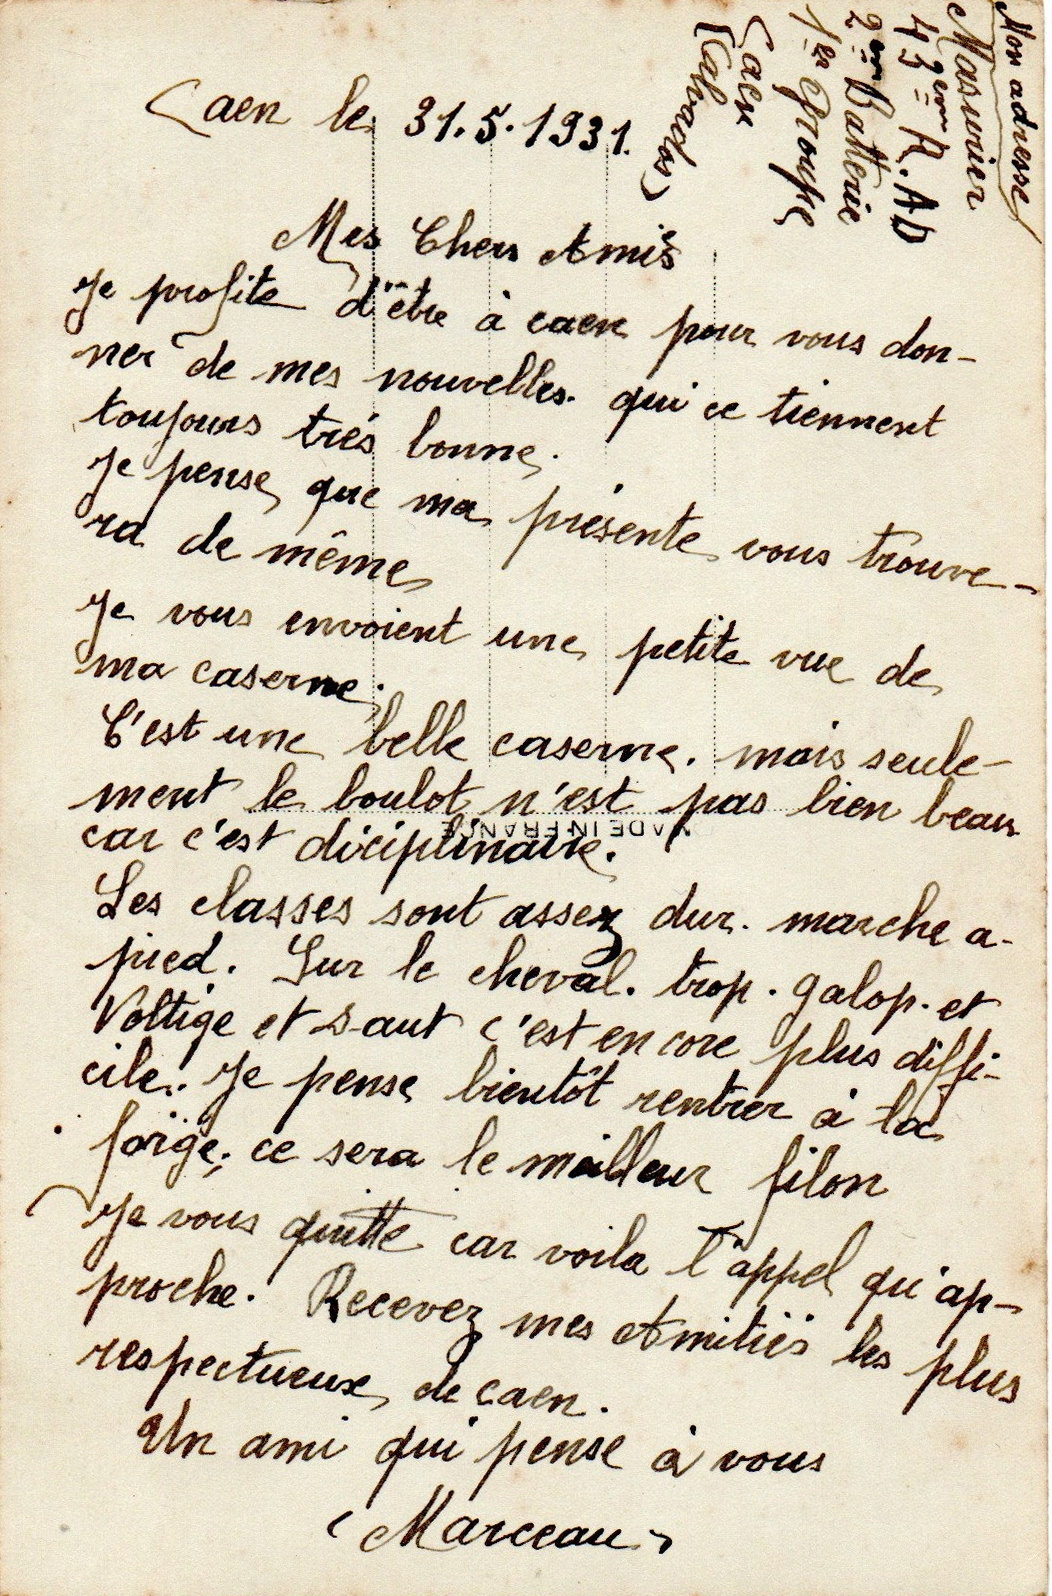 Mon adresse
Masurier
43ème R.AD
2ème Batterie
1er Groupe
Caen
(Calvados)
Caen le 31.5.1931.
Mes Chers Amis
Je profite d'être à caen pour vous don-
ner de mes nouvelles. qui ce tiennent
toujours trés bonne.
Je pense que ma présente vous trouve-
ra de même
Je vous envoient une petite vue de
ma caserne.
C'est une belle caserne. mais seule-
ment le boulot n'est pas bien beau
MADE IN FRANCE
car c'est diciplinaire.
Les classes sont assez dur. marche a-
pied. Sur le cheval. trop. galop. et
Voltige et saut c'est encore plus diffi-
cile. Je pense bientôt rentrer à la
forge, ce sera le meilleur filon
Je vous quitte car voila l'appel qu'ap-
proche. Recevez mes Amitiés les plus
respectueux de caen.
Un ami qui pense à vous
(Marceau)